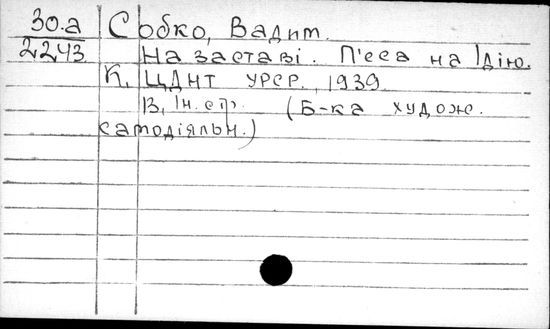 30.а Собко, Вадим.
2243 На заставі. П'еса на 1 дію.
К, ЦДНТ УРСР, 1939
13, 1н. стр. (Б-ка худож.
самодіяльн.)